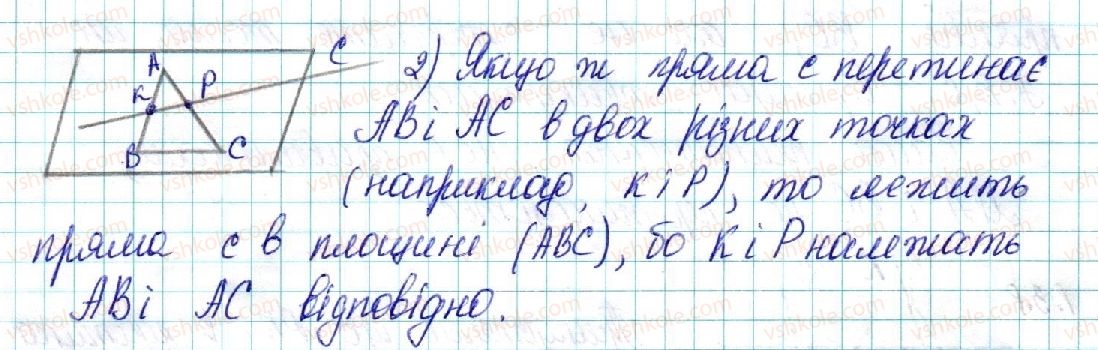 A
K
P
C
B
C
2) Якщо ж пряма c перетинає
AB і AC в двох різних точках
(наприклад, K і P), то лежить
пряма c в площині (ABC), бо K і P належать
AB і AC відповідно.